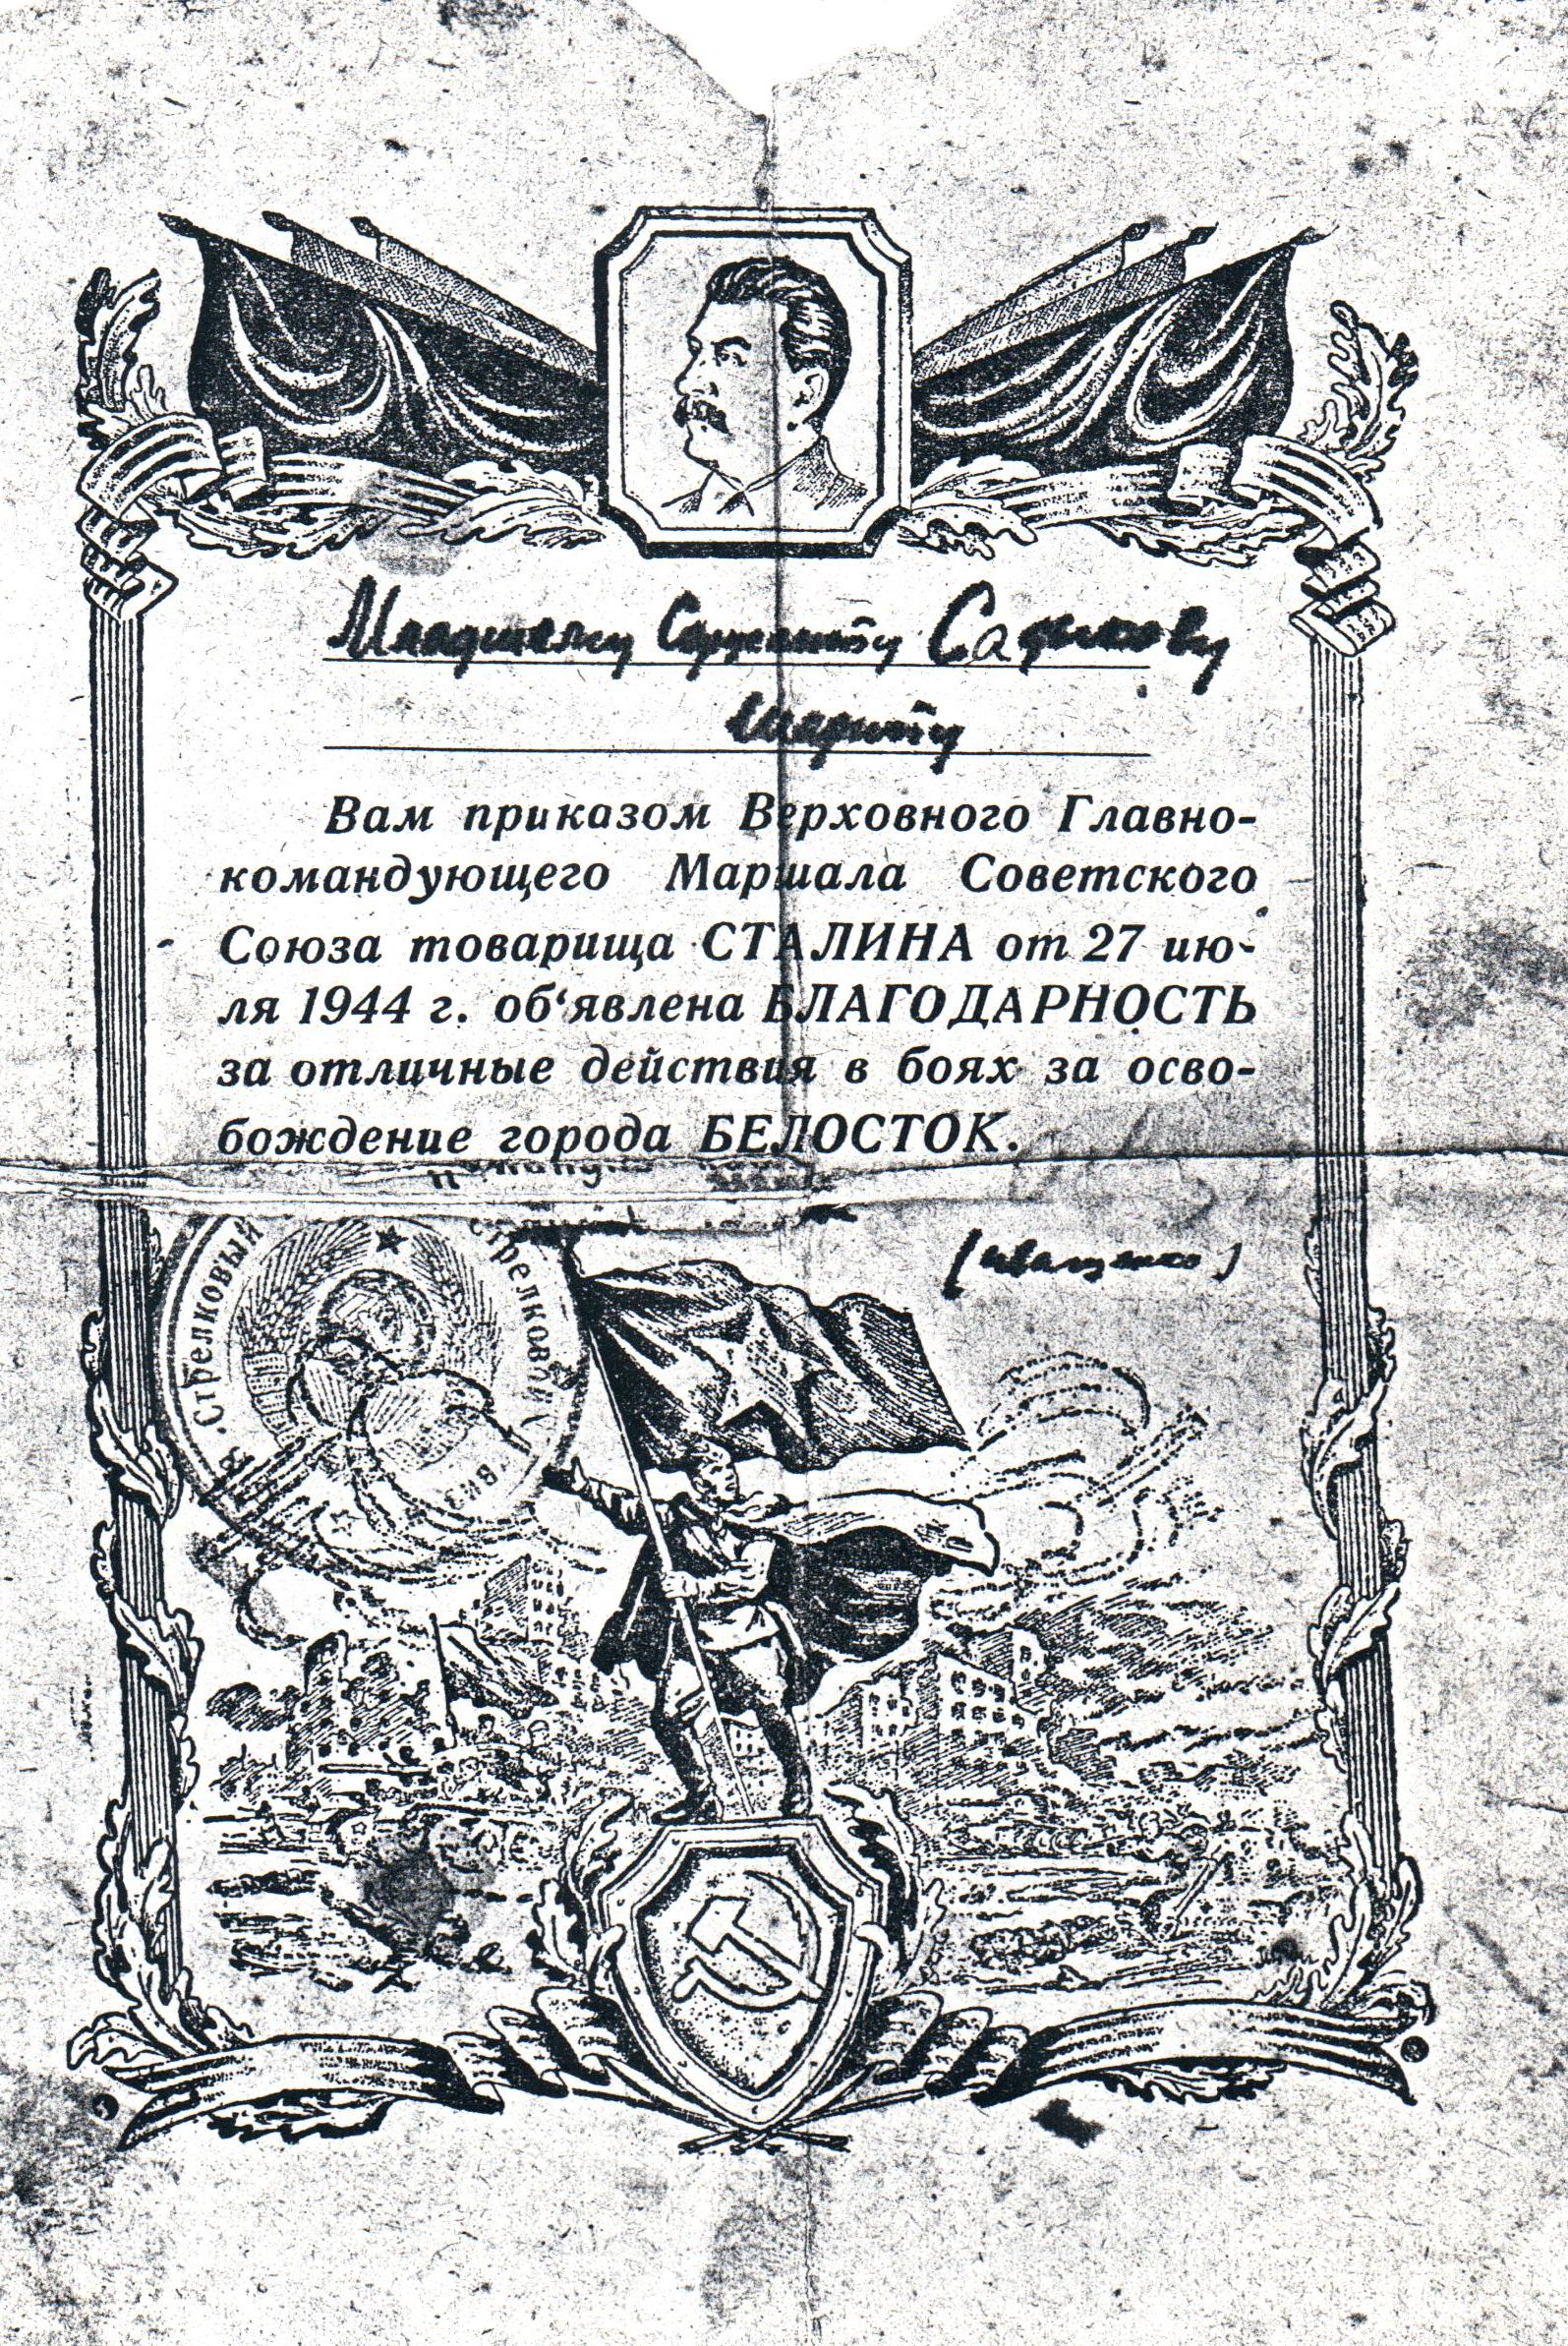 Младшему Сержанту Садыкову
Шариту
Вам приказом Верховного Главно-
командующего Маршала Советского
Союза товарища СТАЛИНА от 27 ию-
ля 1944 г. об‘явлена БЛАГОДАРНОСТЬ
за отличные действия в боях за осво-
бождение города БЕЛОСТОК.
(Иващенко)
Стрелковый
Стрелковой